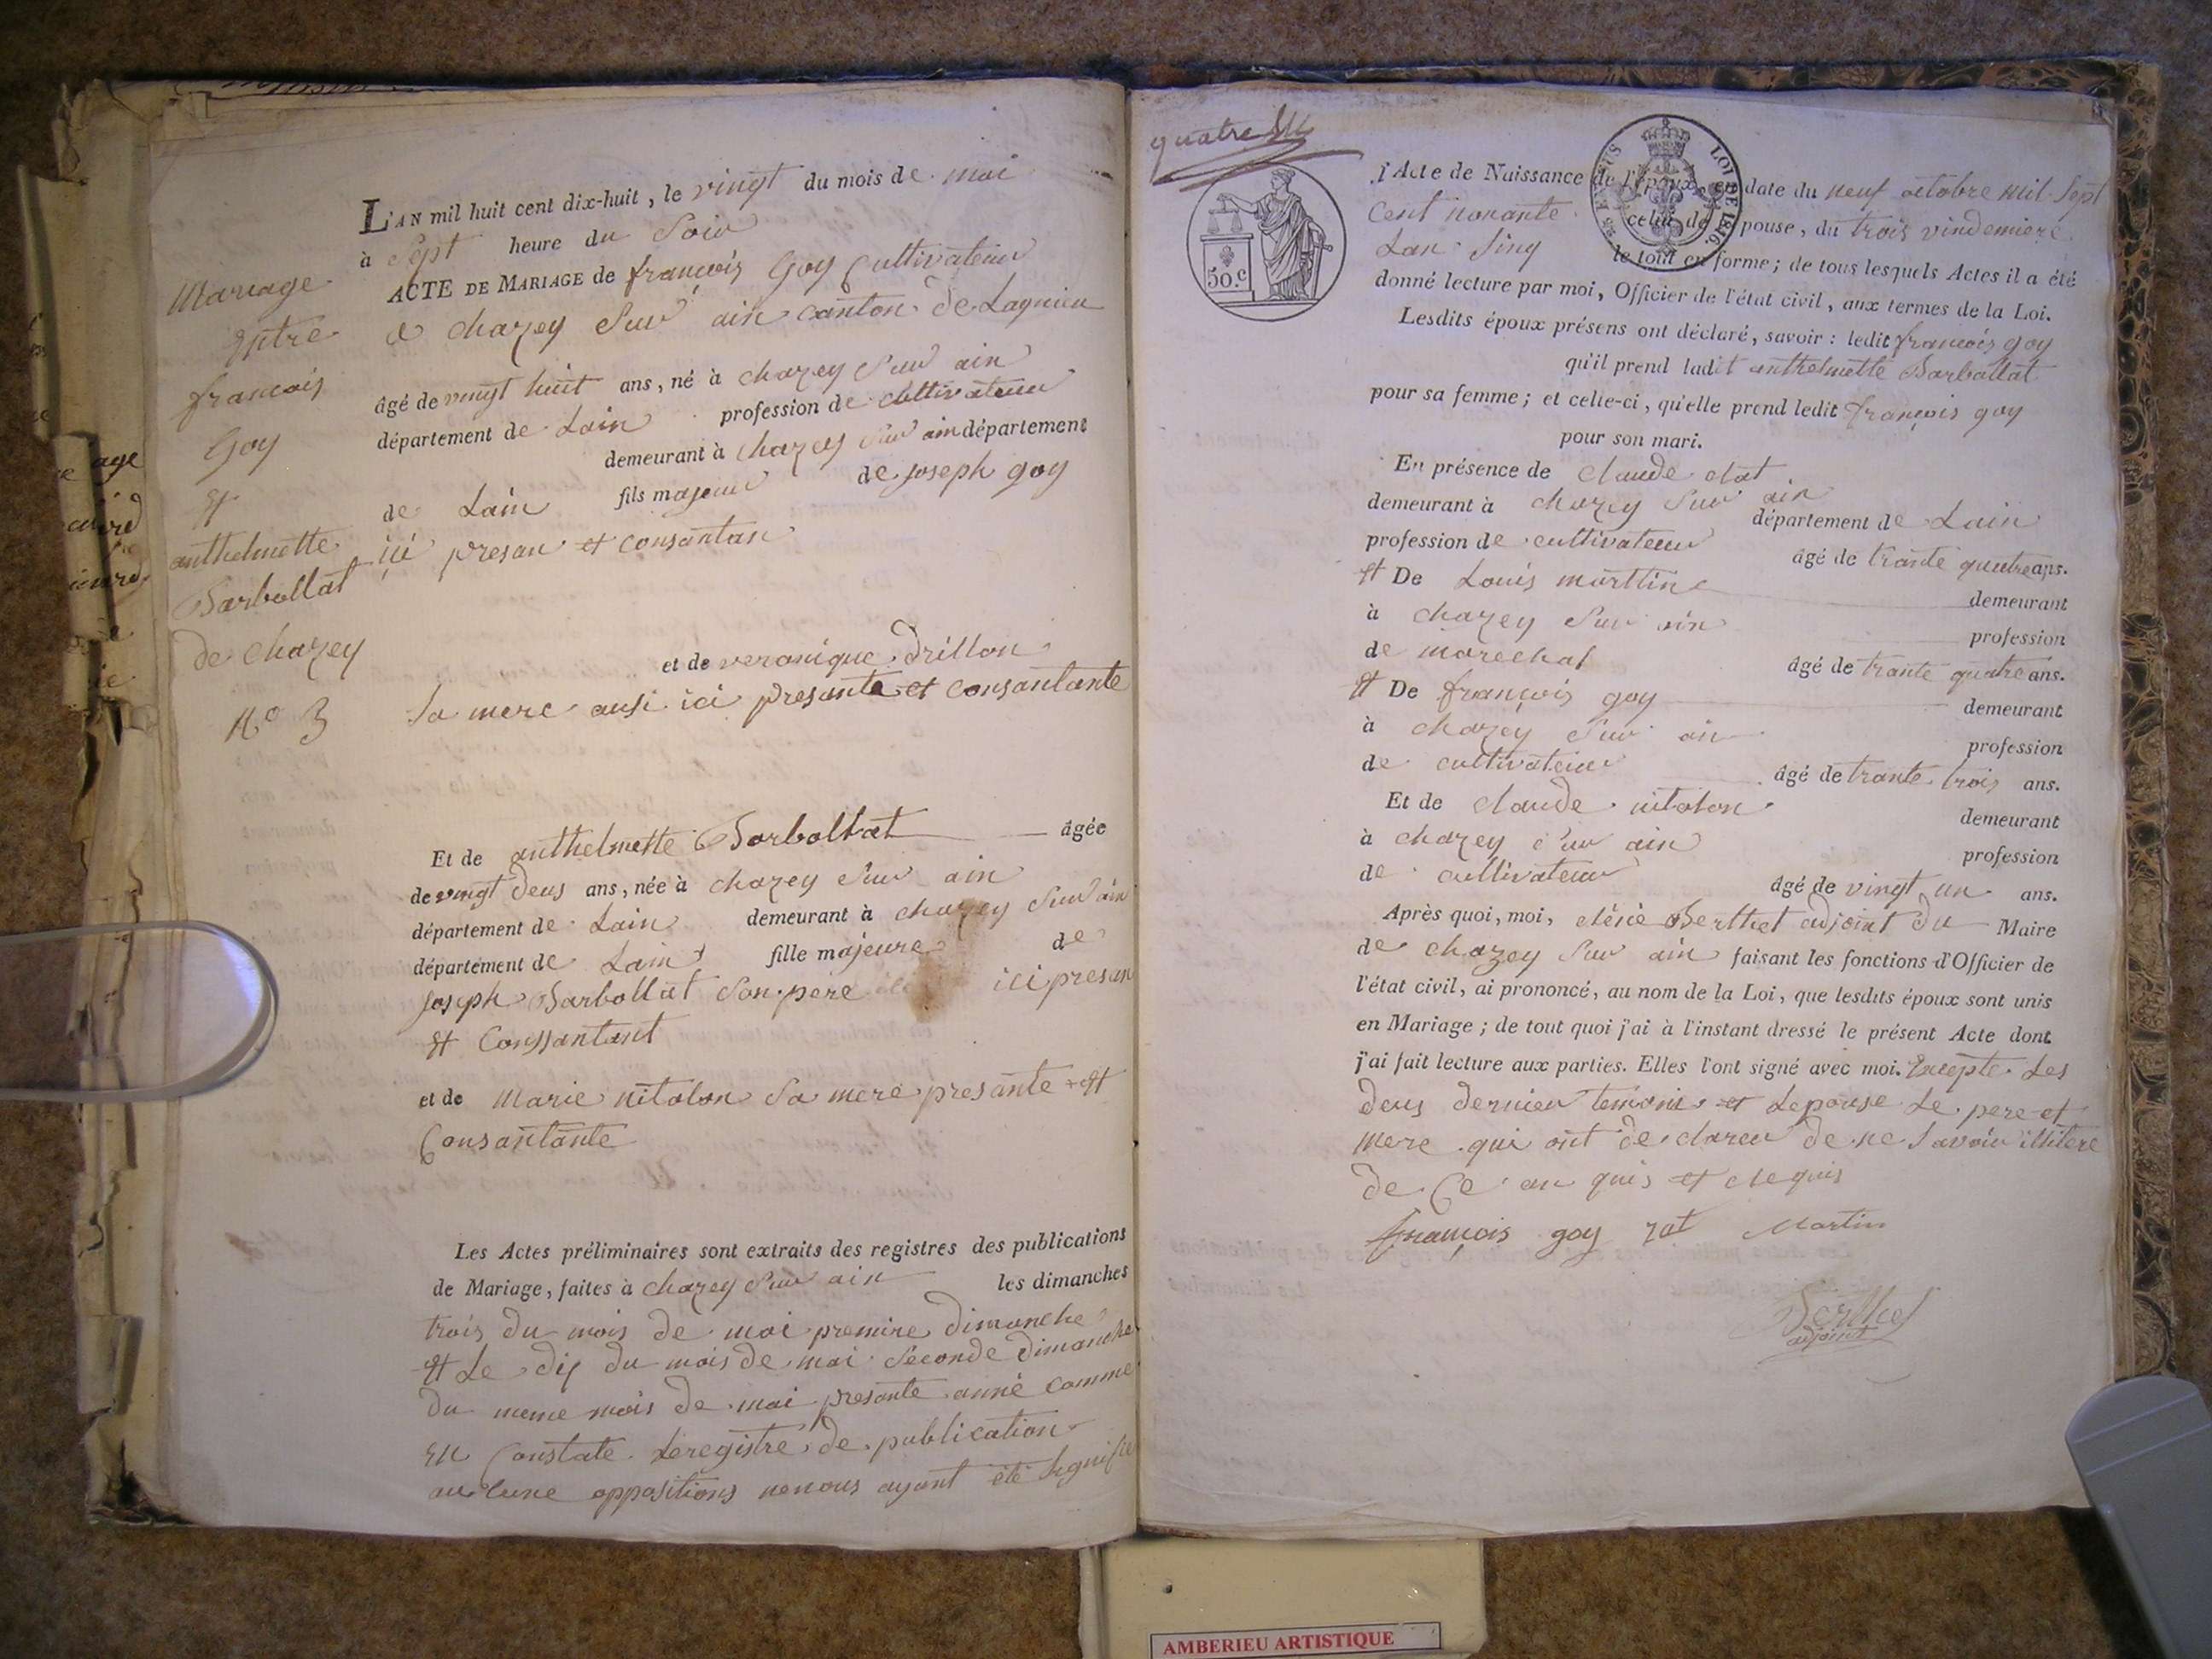 Mariage
Entre
francois
Goy
Et
anthelmette
Barbollat
de chazey
No 3
L'AN mil huit cent dix-huit, le vingt du mois de mai
à Sept heure du Soir
ACTE DE MARIAGE de françois Goy Cultivateur
a chazey Sur ain canton de Lagnieu
âgé de vingt huit ans, né à chazey Sur ain
département de Lain profession de cultivateur
demeurant à chazey Sur ain département
de Lain fils majeur de joseph goy
ici presan et consantan
et de veronique drillon
sa mere ausi ici presante et consantante
Et de anthelmette Barbollat âgée
de vingt deus ans, née à chazey Sur ain
département de Lain demeurant à chazey Sur ain
département de Lain fille majeure de
joseph Barbollat Son pere ici presan
et Conssantant
et de Marie nitolon Sa mere presante et
Consantante
Les Actes préliminaires sont extraits des registres des publications
de Mariage, faites à chazey Sur ain les dimanches
trois du mois de mai premire dimanche
et Le dix du mois de mai Seconde dimanche
du meme mois de mai presante anné comme
En Constate Le registre de publication
aucune oppositions ne nous ayant été Signifie
quatre
50.c
LOI DE 1816.
l'Acte de Naissance de l'époux, en date du neuf octobre mil Sept
Cent nonante celui de l'épouse, du trois vindemiere
Lan Sinq le tout en forme; de tous lesquels Actes il a été
donné lecture par moi, Officier de l'état civil, aux termes de la Loi.
Lesdits époux présens ont déclaré, savoir: ledit francois goy
qu'il prend ladit anthelmette Barbollat
pour sa femme; et celle-ci, qu'elle prend ledit françois goy
pour son mari.
En présence de claude
demeurant à chazey Sur ain département de Lain
profession de cultivateur âgé de trante quatre ans.
Et De Louis marttin demeurant
à chazey Sur ain profession
de marechal âgé de trante quatre ans.
Et De françois goy demeurant
à chazey Sur ain profession
de cultivateur âgé de trante trois ans.
Et de claude nitolon demeurant
à chazey Sur ain profession
de cultivateur âgé de vingt un ans.
Après quoi, moi, Berthet adjoint du Maire
de chazey Sur ain faisant les fonctions d'Officier de
l'état civil, ai prononcé, au nom de la Loi, que lesdits époux sont unis
en Mariage; de tout quoi j'ai à l'instant dressé le présent Acte dont
j'ai fait lecture aux parties. Elles l'ont signé avec moi. Excepte Les
deus dernier temoins et Lepouse Le pere et
mere qui ont declarer de ne Savoir
de Ce
françois goy Martin
Berthet
adjoint
AMBERIEU ARTISTIQUE